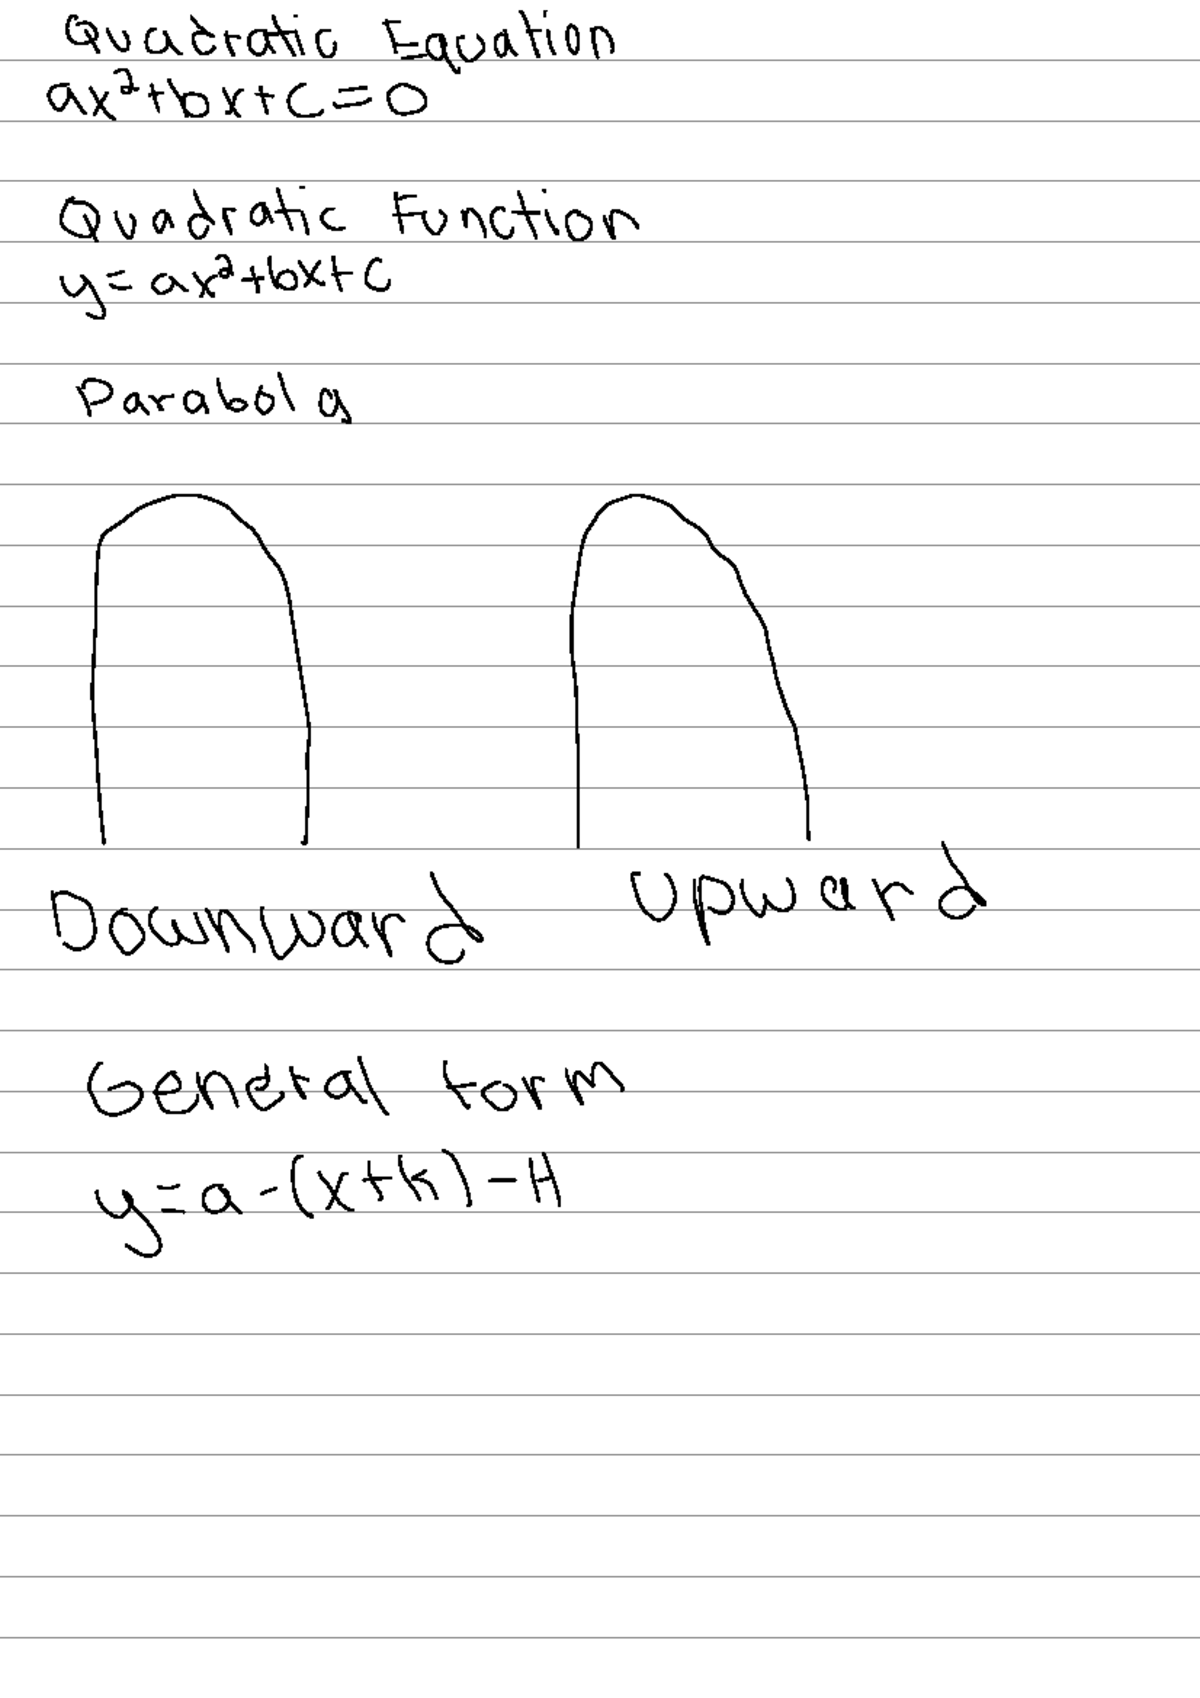 Quadratic Equation
ax²+bx+c=0
Quadratic Function
y=ax²+bx+c
Parabola
Downward
Upward
General form
y=a-(x+k)-H